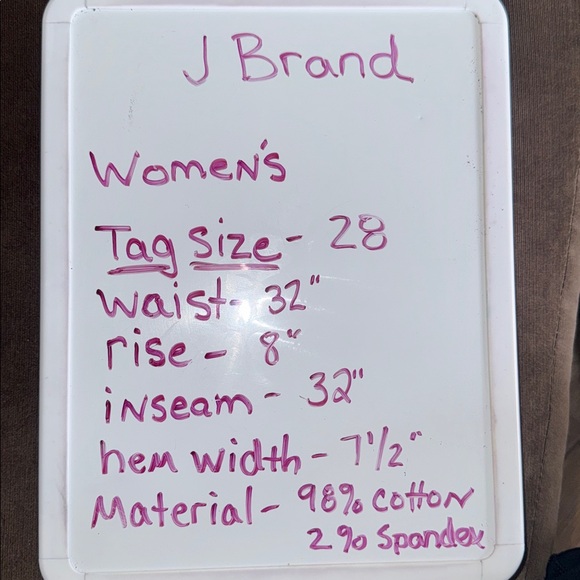 J Brand
Women's
Tag Size - 28
waist - 32"
rise - 8"
inseam - 32"
hem width - 7 1/2"
Material - 98% cotton
2% Spandex